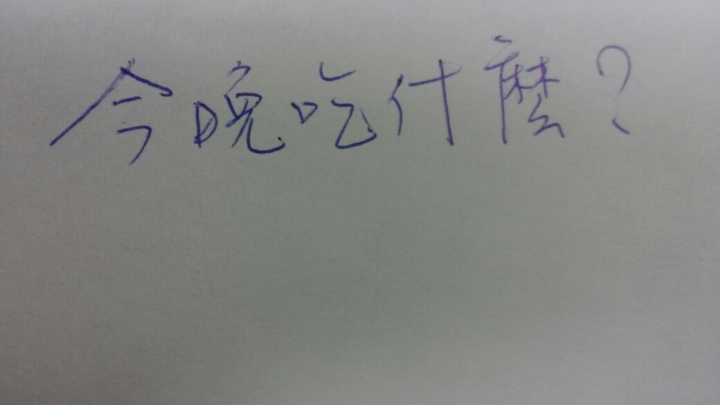 今晚吃什麼?